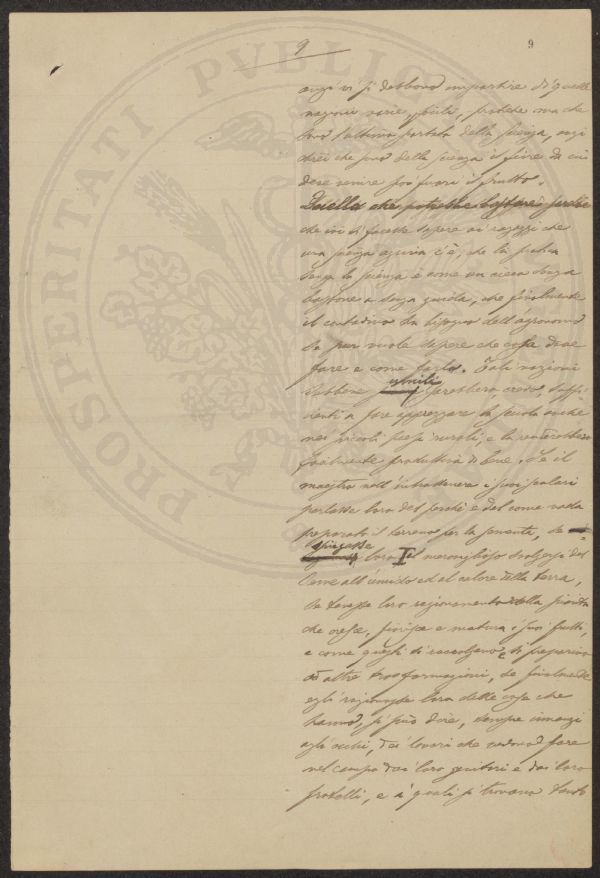 9
9
PROSPERITATI PVBLICAE
anzi vi si debbono impartire di quelle
nozioni varie, utili, pratiche ma che
sono l'ultima portata della scienza, anzi
direi che sono della scienza il fiore da cui
deve venire poi fuori il frutto.
Quella che potrebbe bastare perchè
che ivi si facesse sapere ai ragazzi che
una scienza agraria c'è, che la pratica
senza la scienza è come un cieco senza
bastone e senza guida, che finalmente
il contadino ha bisogno dell'agronomo
se pur vuole sapere che cosa deve
fare e come farlo. Tali nozioni
sebbene umili sarebbero, credo, suffi-
cienti a fare apprezzare la scuola anche
nei piccoli paesi rurali, e la renderebbero
facilmente produttiva di bene. Se il
maestro nell'intrattenere i suoi scolari
parlasse loro del perchè e del come vada
preparato il terreno per la sementa, se
spiegasse loro il meraviglioso svolgersi del
seme all'umido ed al calore della terra,
se tenesse loro ragionamento della pianta
che cresce, fiorisce e matura i suoi frutti,
e come quegli si raccolgano e si preparino
ad altre trasformazioni, se finalmente
egli ragionasse loro delle cose che
hanno, si può dire, sempre innanzi
agli occhi, dei lavori che vedono fare
nel campo dai loro genitori e dai loro
fratelli, e a' quali si trovano tanto